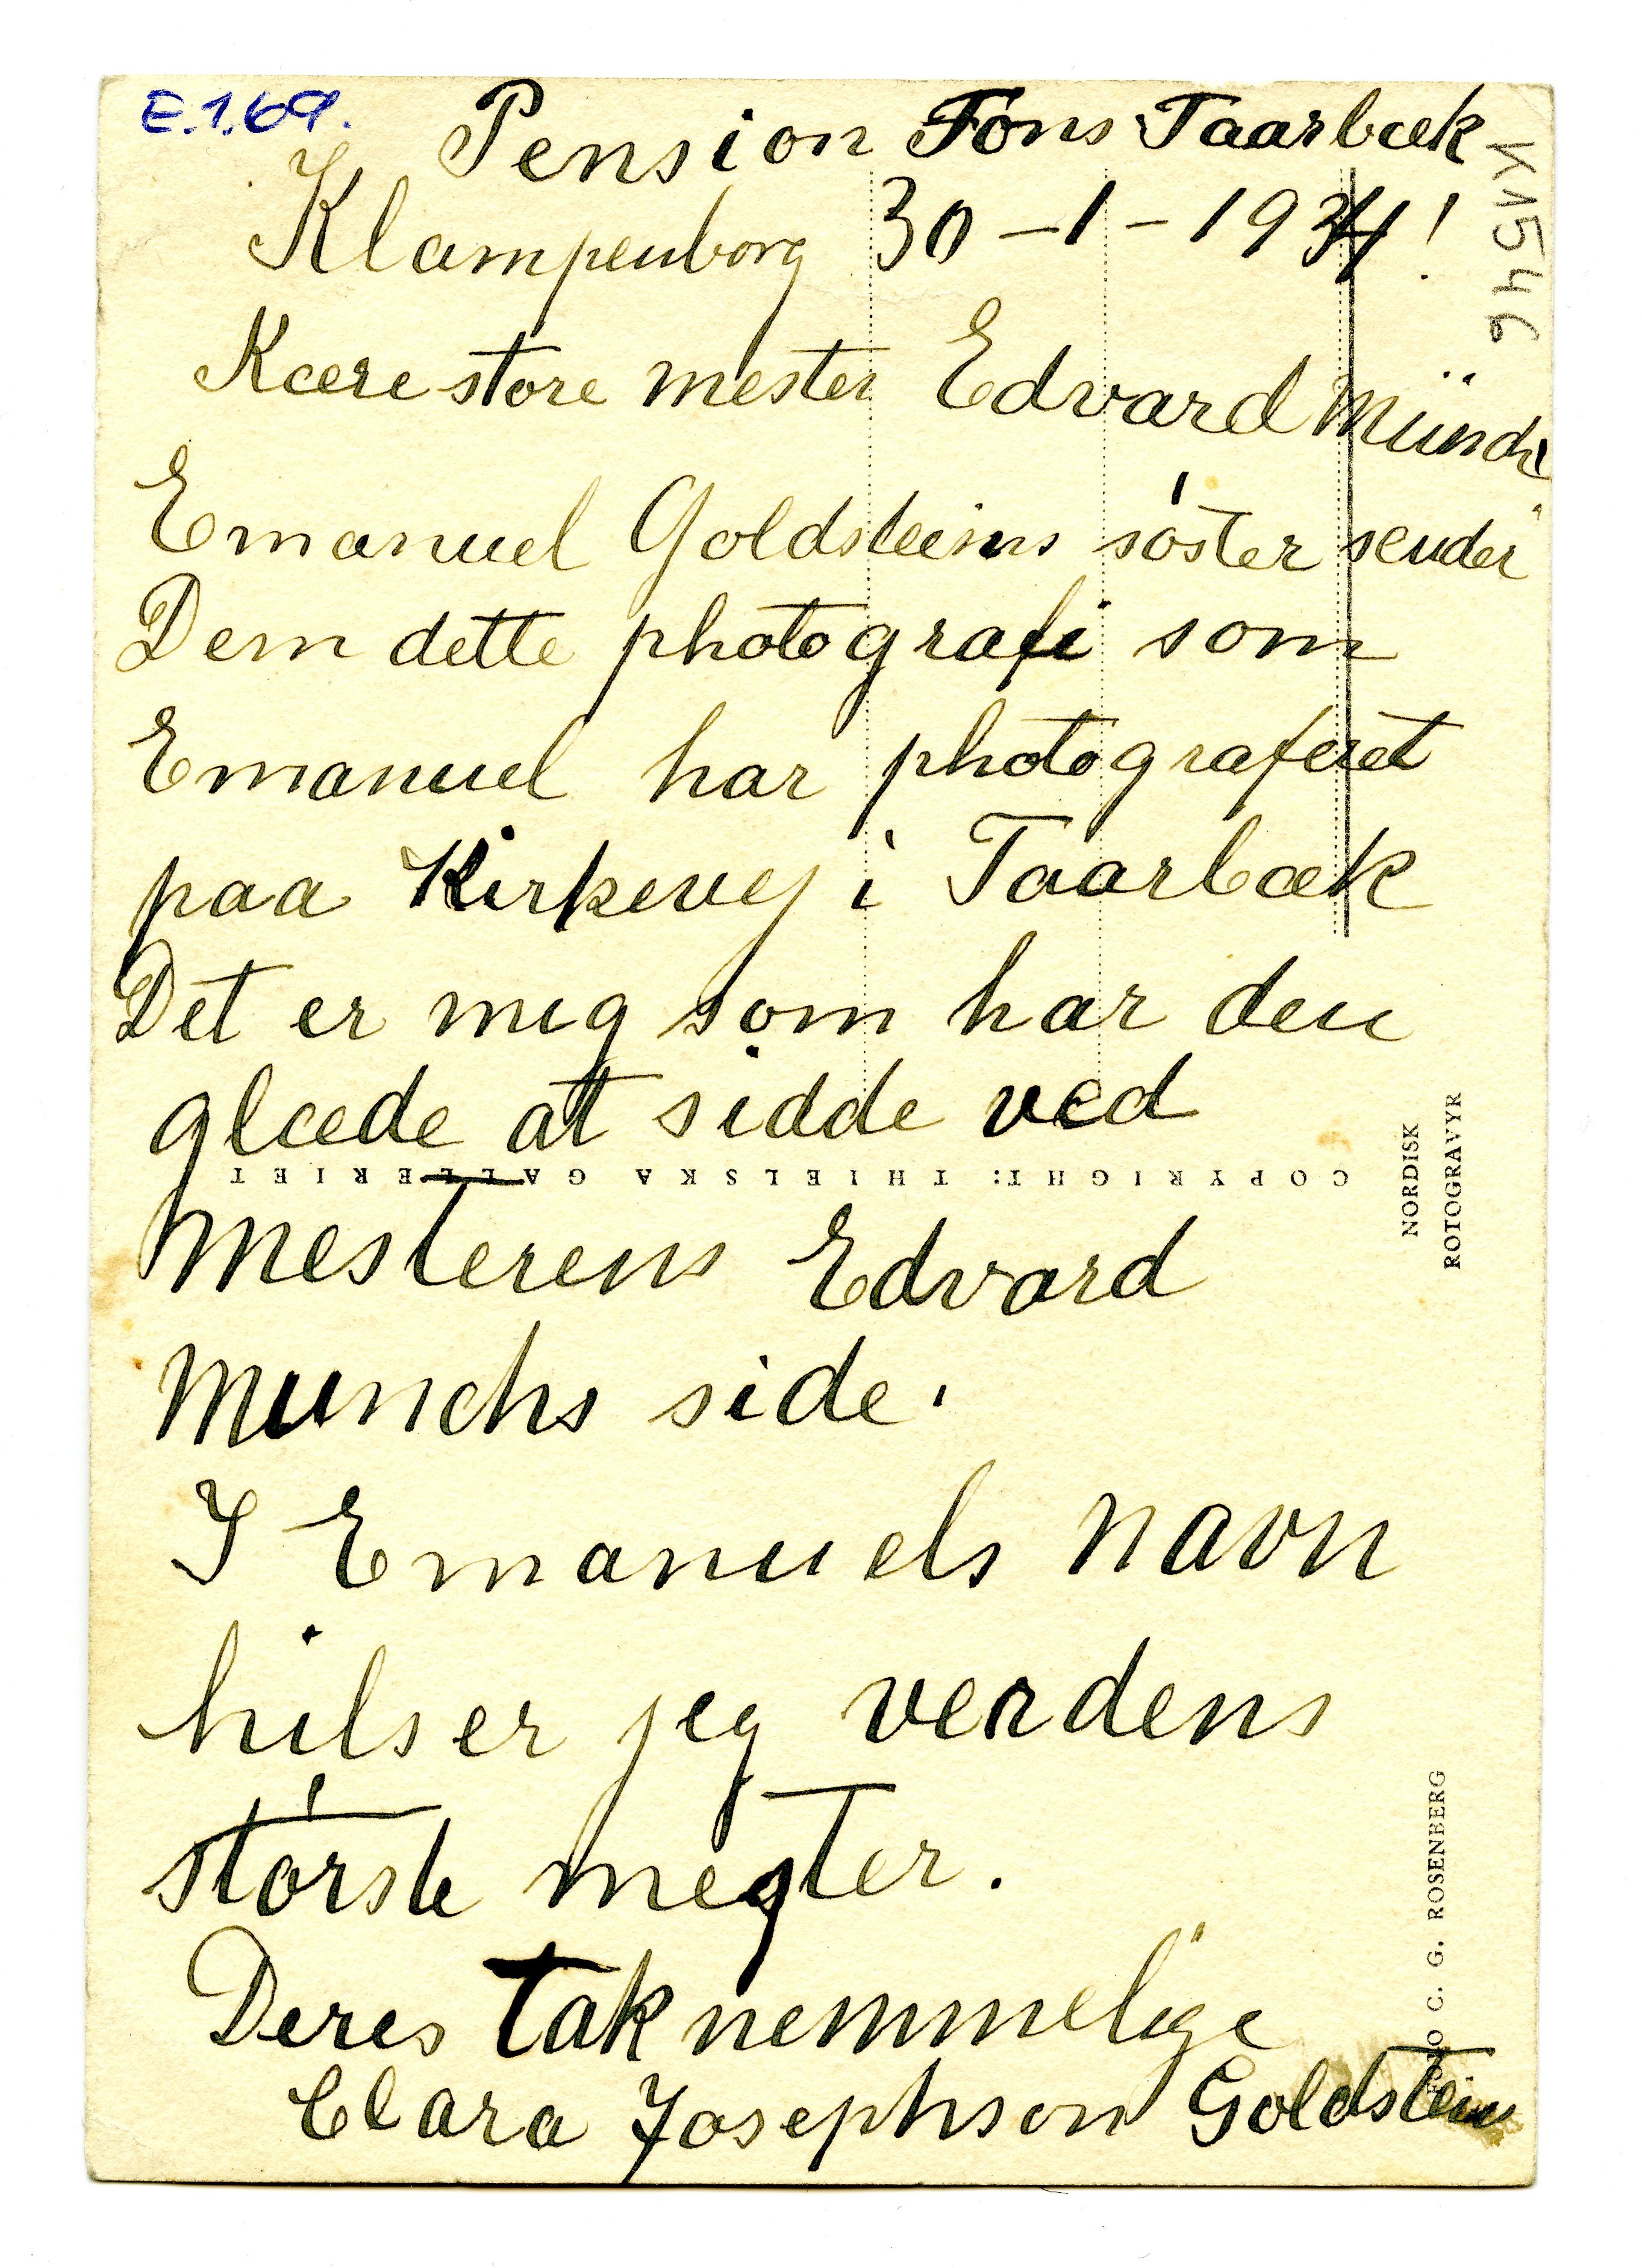 E.1.69.
Pension Föns Taarbæk
Klampenborg 30-1-1934!
K1546
Kære store mester Edvard Münch
Emanuel Goldsteins söster sender
Dem dette photografi som
Emanuel har photograferet
paa Kirkevej i Taarbæk
Det er mig som har den
glæde at sidde ved
COPYRIGHT: THIELSKA GALLERIET
NORDISK
ROTOGRAVYR
mesterens Edvard
Munchs side.
I Emanuels navn
hilser jeg verdens
störste mester.
Deres taknemmelige
Clara Josephson Goldstein
FOTO C. G. ROSENBERG